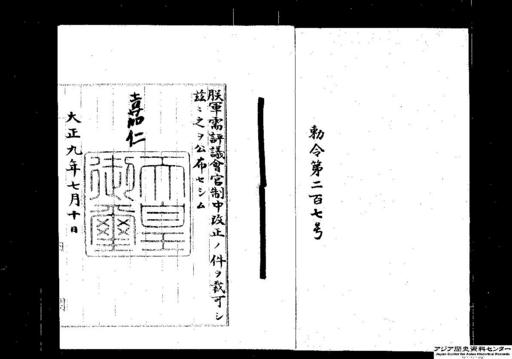 勅令第二百七号
朕軍需評議會官制中改正ノ件ヲ裁可シ
茲ニ之ヲ公布セシム
嘉仁
天皇御璽
大正九年七月十日
アジア歴史資料センター
Japan Center for Asian Historical Records